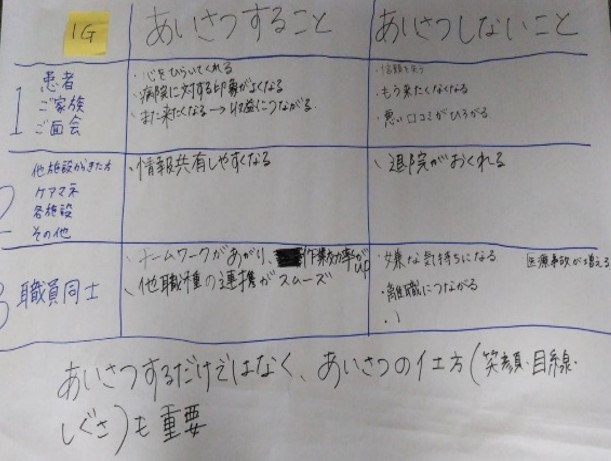 1G
あいさつすること
あいさつしないこと
1
患者
ご家族
ご面会
・心をひらいてくれる
・病院に対する印象がよくなる
・また来たくなる→収益につながる
・信頼を失う
・もう来たくなくなる
・悪い口コミがひろがる
2
他施設からきた方
ケアマネ
各施設
その他
・情報共有しやすくなる
・退院がおくれる
3
職員同士
・チームワークがあがり、作業効率がup
・他職種の連携がスムーズ
・嫌な気持ちになる
医療事故が増える
・離職につながる
・
あいさつするだけではなく、あいさつの仕方(笑顔・目線・
しぐさ)も重要